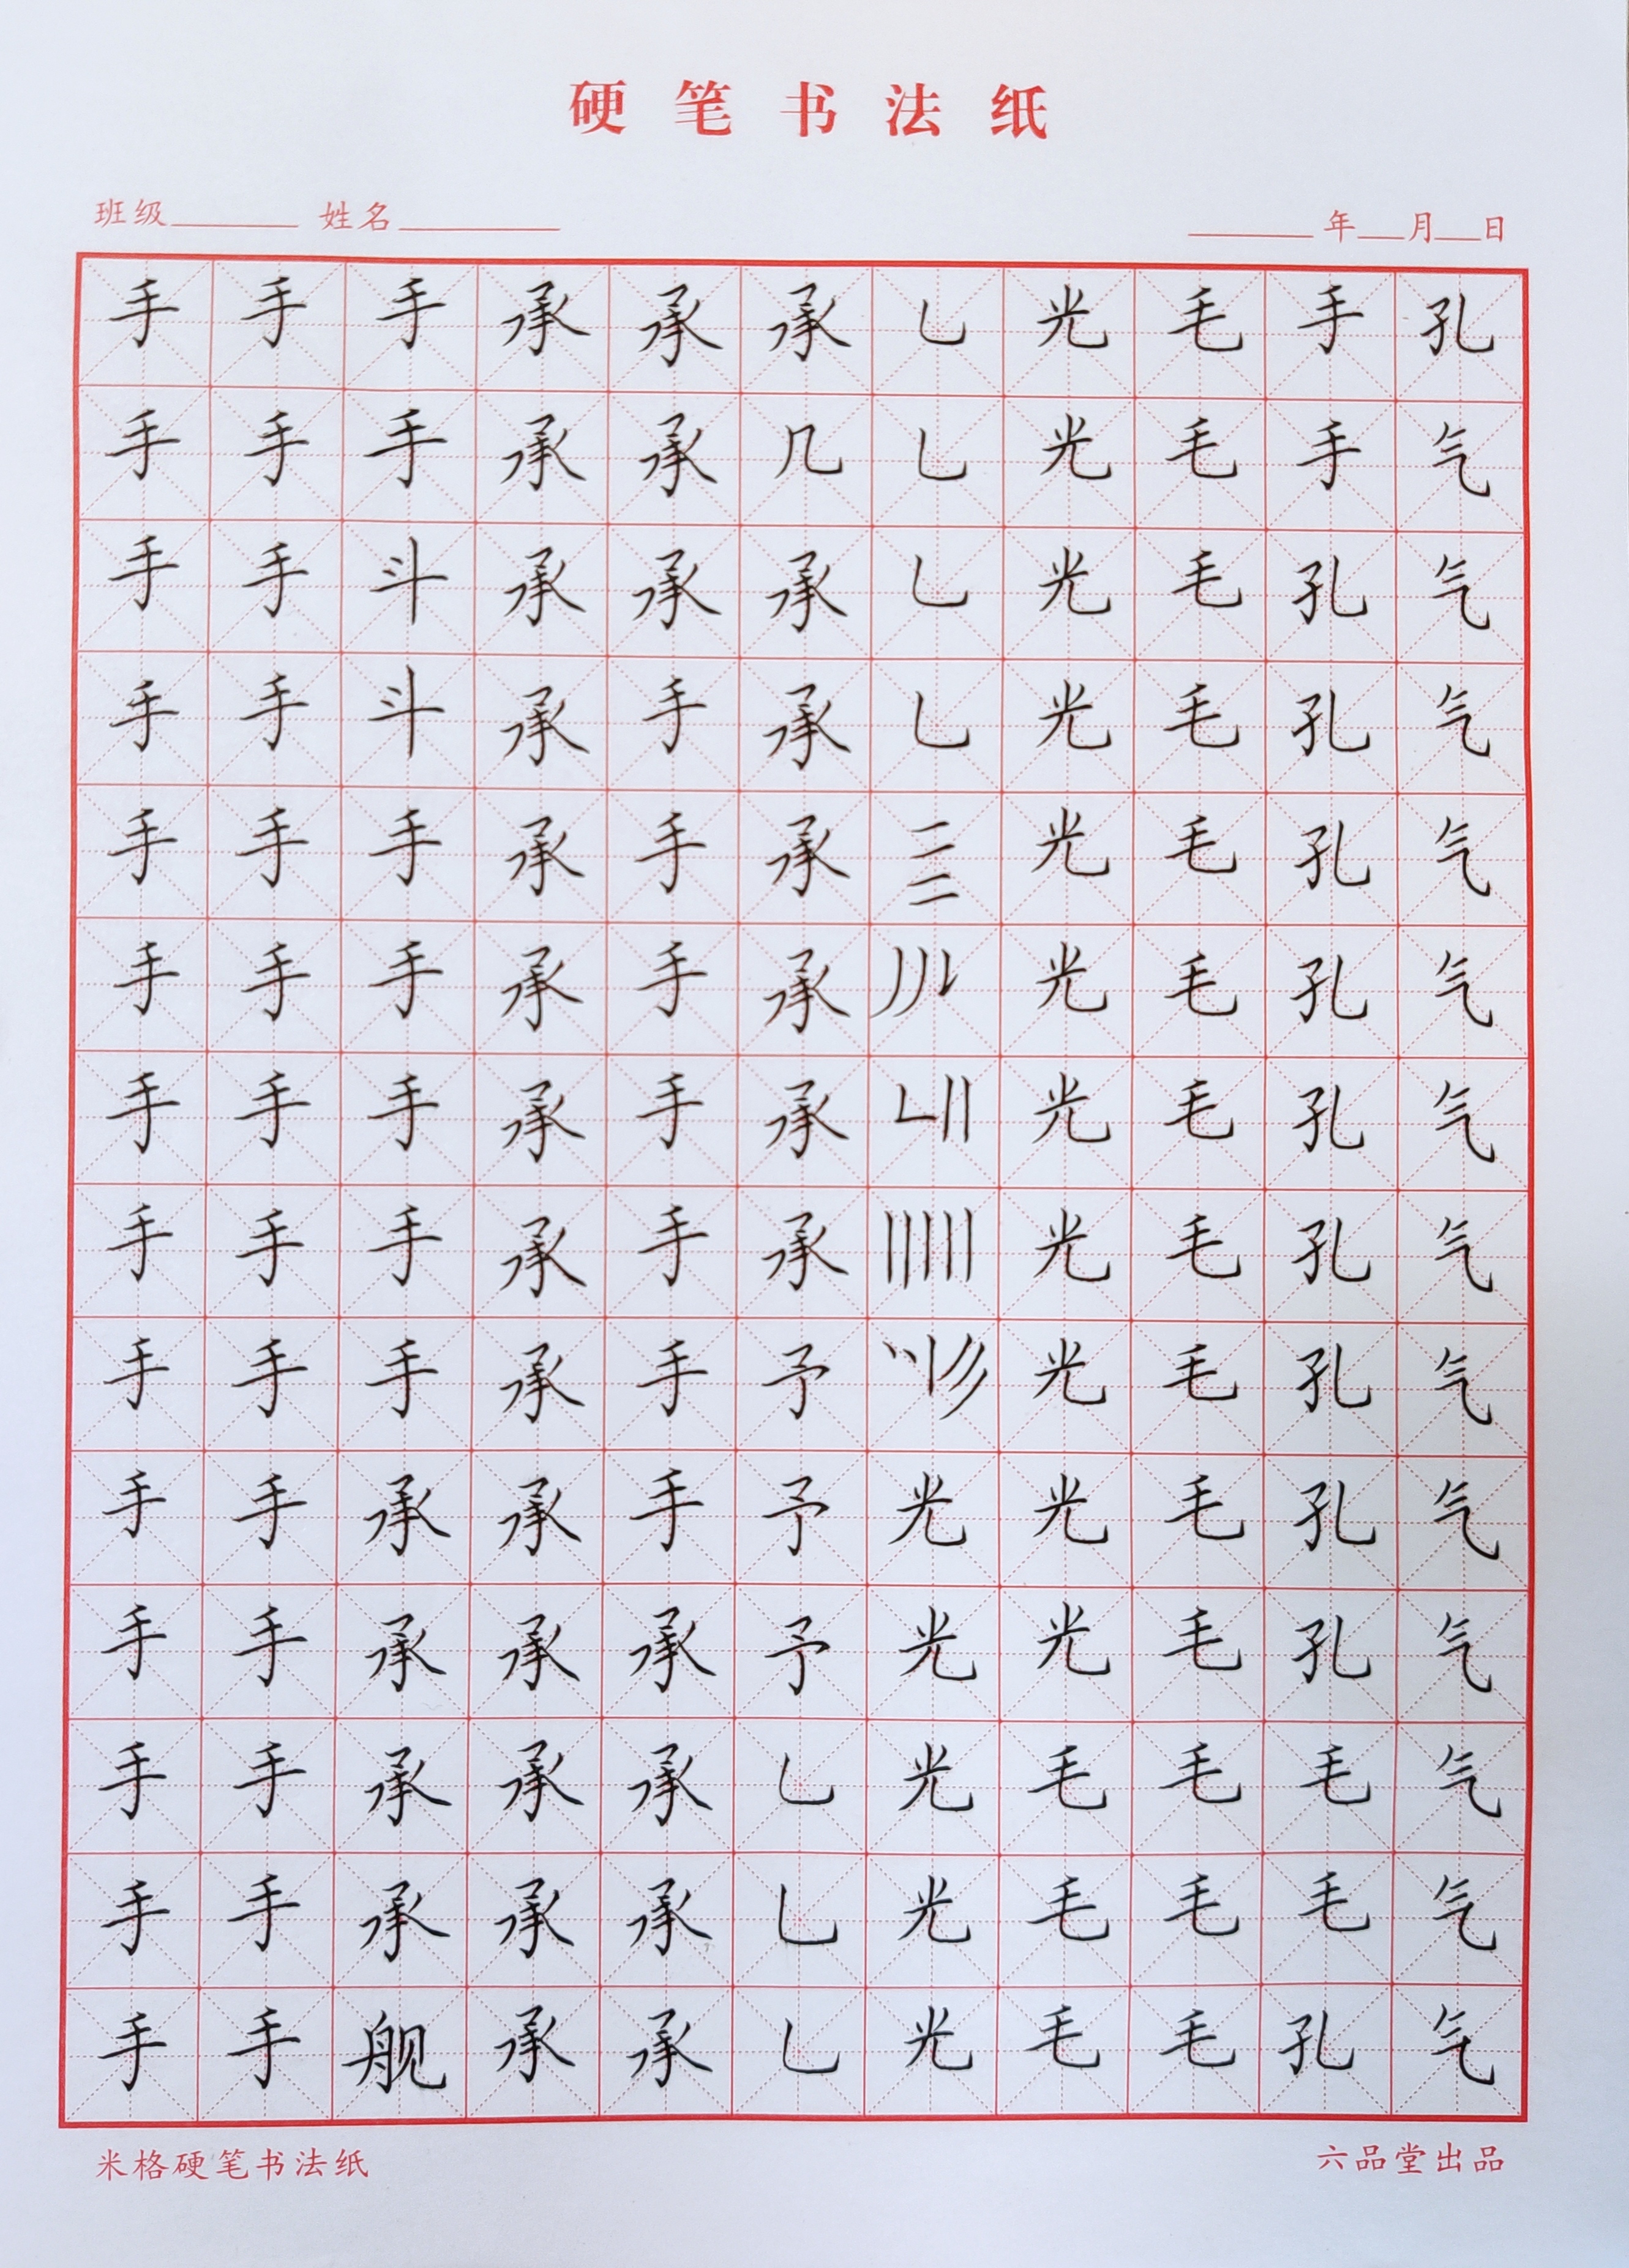 硬笔书法纸
班级______ 姓名______ ______年___月___日
手 手 手 承 承 承 乚 光 毛 手 孔
手 手 手 承 承 几 乚 光 毛 手 气
手 手 斗 承 承 承 乚 光 毛 孔 气
手 手 斗 承 手 承 乚 光 毛 孔 气
手 手 手 承 手 承 光 毛 孔 气
手 手 手 承 手 承 光 毛 孔 气
手 手 手 承 手 承 光 毛 孔 气
手 手 手 承 手 承 光 毛 孔 气
手 手 手 承 手 予 光 毛 孔 气
手 手 承 承 手 予 光 光 毛 孔 气
手 手 承 承 承 予 光 光 毛 孔 气
手 手 承 承 承 乚 光 毛 毛 毛 气
手 手 承 承 承 乚 光 毛 毛 毛 气
手 手 舰 承 承 乚 光 毛 毛 孔 气
米格硬笔书法纸 六品堂出品